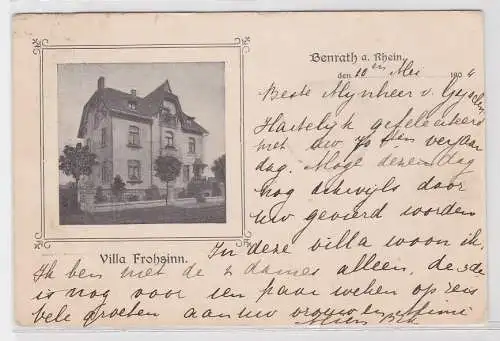 Benrath a. Rhein,
den 10en Mei 1904
Beste Mynheer v.
Hartelyk gefeliciteerd
met uw 70sten verjaar
dag. Moge dezen dag
nog dikwijls door
uw gevierd worden
Villa Frohsinn.
In deze villa woon ik.
Ik ben met de 2 dames alleen, de 3de
is nog voor een paar weken op reis
vele groeten aan uw vrouw